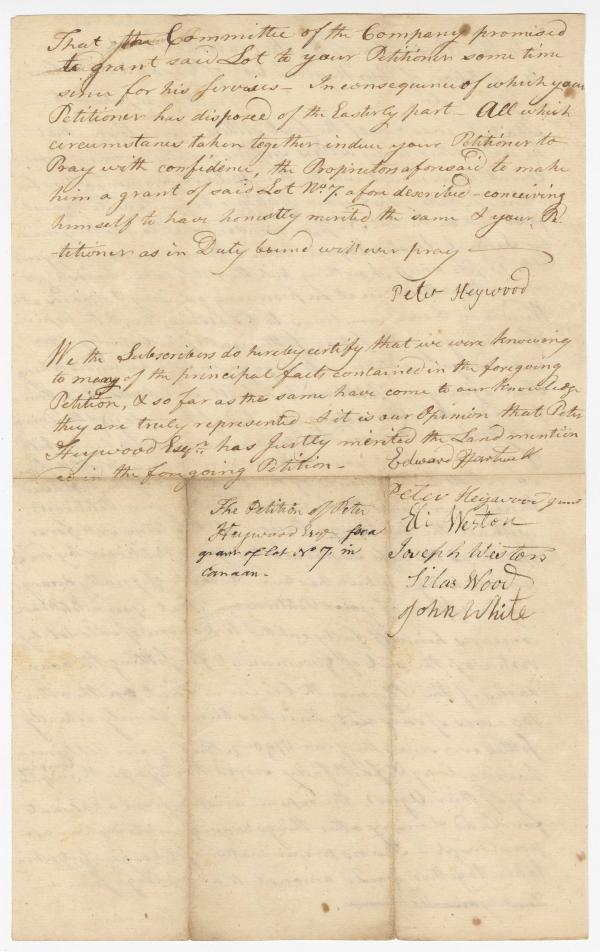 That the Committee of the Company promised
to grant said Lot to your Petitioner some time
since for his services - In consequence of which your
Petitioner has disposed of the Easterly part - All which
circumstances taken together induce your Petitioner to
Pray with confidence, the Proprietors aforesaid to make
him a grant of said Lot No. 7. afore described - conceiving
himself to have honestly merited the same & your Pe-
-titioner as in Duty bound will ever pray
Peter Heywood
We the Subscribers do hereby certify that we were knowing
to many of the principal facts contained in the foregoing
Petition, & so far as the same have come to our knowledge
they are truly represented & it is our Opinion that Peter
Heywood Esqr. has Justly merited the Land mention
ed in the foregoing Petition -
Edward Hartwell
Peter Heywood Junr
Eli Weston
Joseph Weston
Silas Wood
John White
The Petition of Peter
Heywood Esqr for a
grant of Lot No 7. in
Canaan -